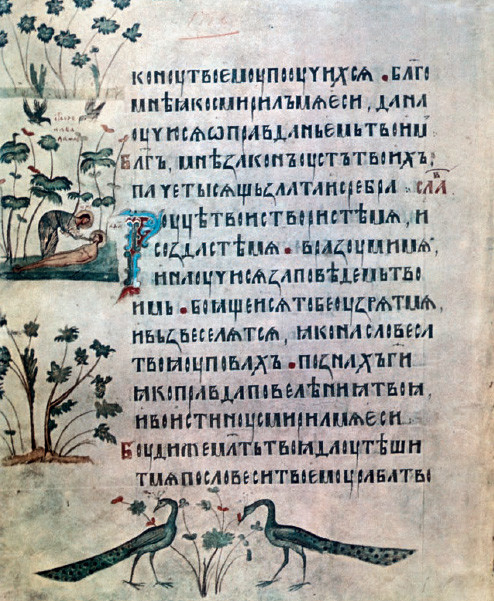 коноутвоемоупооучихсѧ • бл҃го
мнѣꙗкосмирилъмѧеси, данаⷹ
оучисѧѡправданьемътвоим
Благъ, мнѣзаконъоустътвоихъ,
пачетысѧщьзлатаисребра • слаⷡ
Роуцѣтвоиствористемѧ, и
создастемѧ • вразоумимѧ,
инаоучисѧзаповѣдемътво
имь • боꙗщеисѧтобеоузрѧтмѧ,
ивьзвеселѧтсѧ, ꙗконасловеса
твоꙗоуповахъ • познахъг҃и
ꙗкоправдаповелѣниꙗтвоꙗ,
ивоистиноусмирилмѧеси
Боудижемлⷭтьтвоꙗдаоутѣши
тмѧпословеситвоемоурабатво